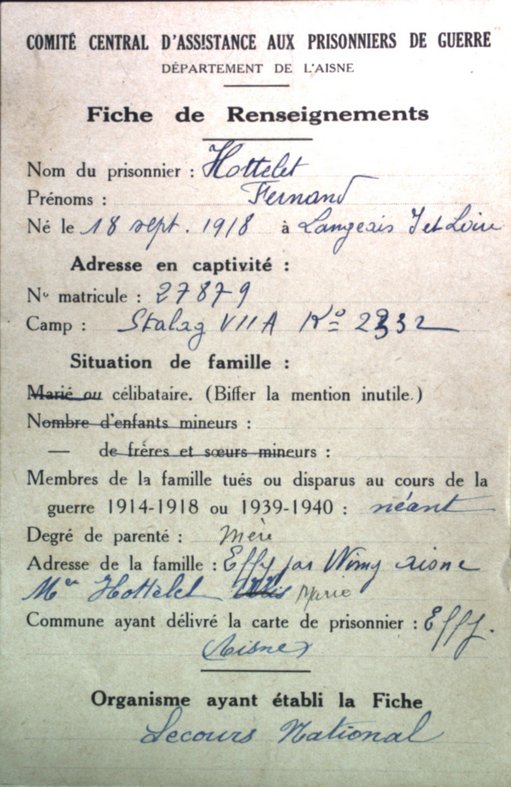 COMITÉ CENTRAL D'ASSISTANCE AUX PRISONNIERS DE GUERRE
DÉPARTEMENT DE L'AISNE
Fiche de Renseignements
Nom du prisonnier : Hottelet
Prénoms : Fernand
Né le 18 sept. 1918 à Langeais I et Loire
Adresse en captivité :
N° matricule : 27879
Camp : Stalag VII A Ko 2332
Situation de famille :
Marié ou célibataire. (Biffer la mention inutile.)
Nombre d'enfants mineurs :
— de frères et sœurs mineurs :
Membres de la famille tués ou disparus au cours de la
guerre 1914-1918 ou 1939-1940 : néant
Degré de parenté : mère
Adresse de la famille : Effy par Wimy aisne
Me Hottelet Marie
Commune ayant délivré la carte de prisonnier : Effy.
Aisne
Organisme ayant établi la Fiche
Secours National